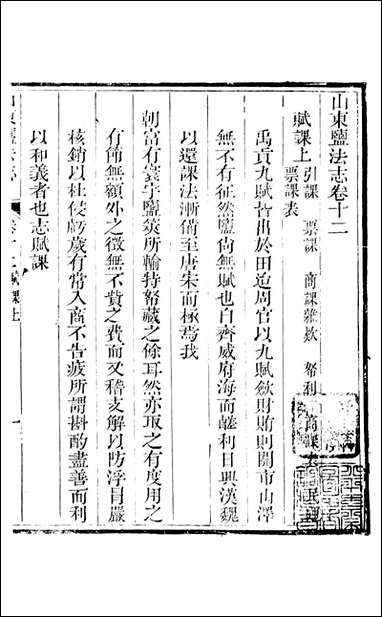 山東鹽法志卷十二
賦課上 引課 票課 商課雜欵 帑利 商課表
票課表
禹貢九賦皆出於田迨周官以九賦歛財賄則關市山澤
無不有征然鹽尚無賦也自齊威府海而鹺利日興漢魏
以還課法漸備至唐宋而極焉我
朝富有寰宇鹽筴所輸特帑藏之餘耳然亦取之有度用之
有節無額外之徵無不貲之費而又稽支解以防浮冒嚴
核銷以杜侵虧歲有常入商不告疲所謂斟酌盡善而利
以和義者也志賦課
山東鹽法志 卷十二 賦課上 一